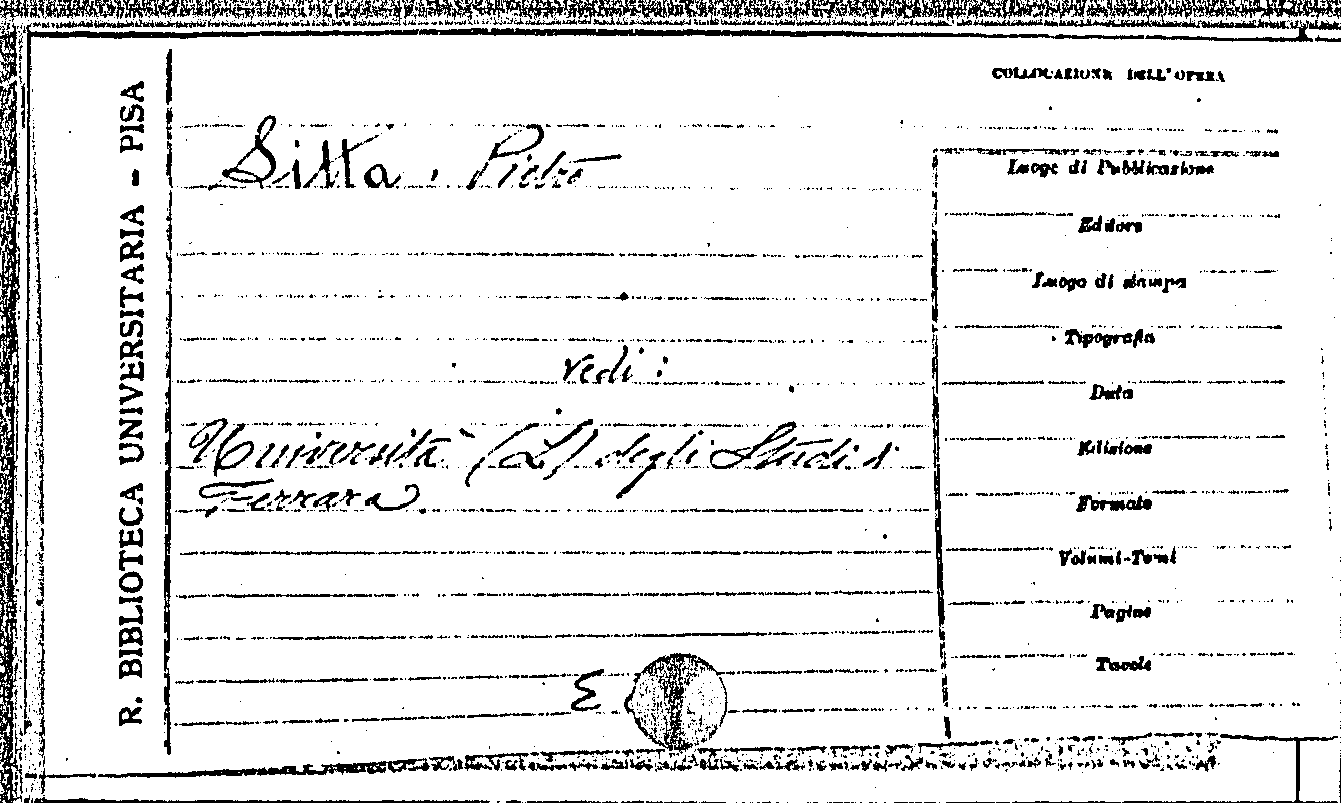 R. BIBLIOTECA UNIVERSITARIA - PISA
COLLOCAZIONE DELL'OPERA
Sitta, Pietro
vedi:
Università (L') degli Studi di
Ferrara.
Luogo di Pubblicazione
Editore
Luogo di stampa
Tipografia
Data
Edizione
Formato
Volumi-Tomi
Pagine
Tavole